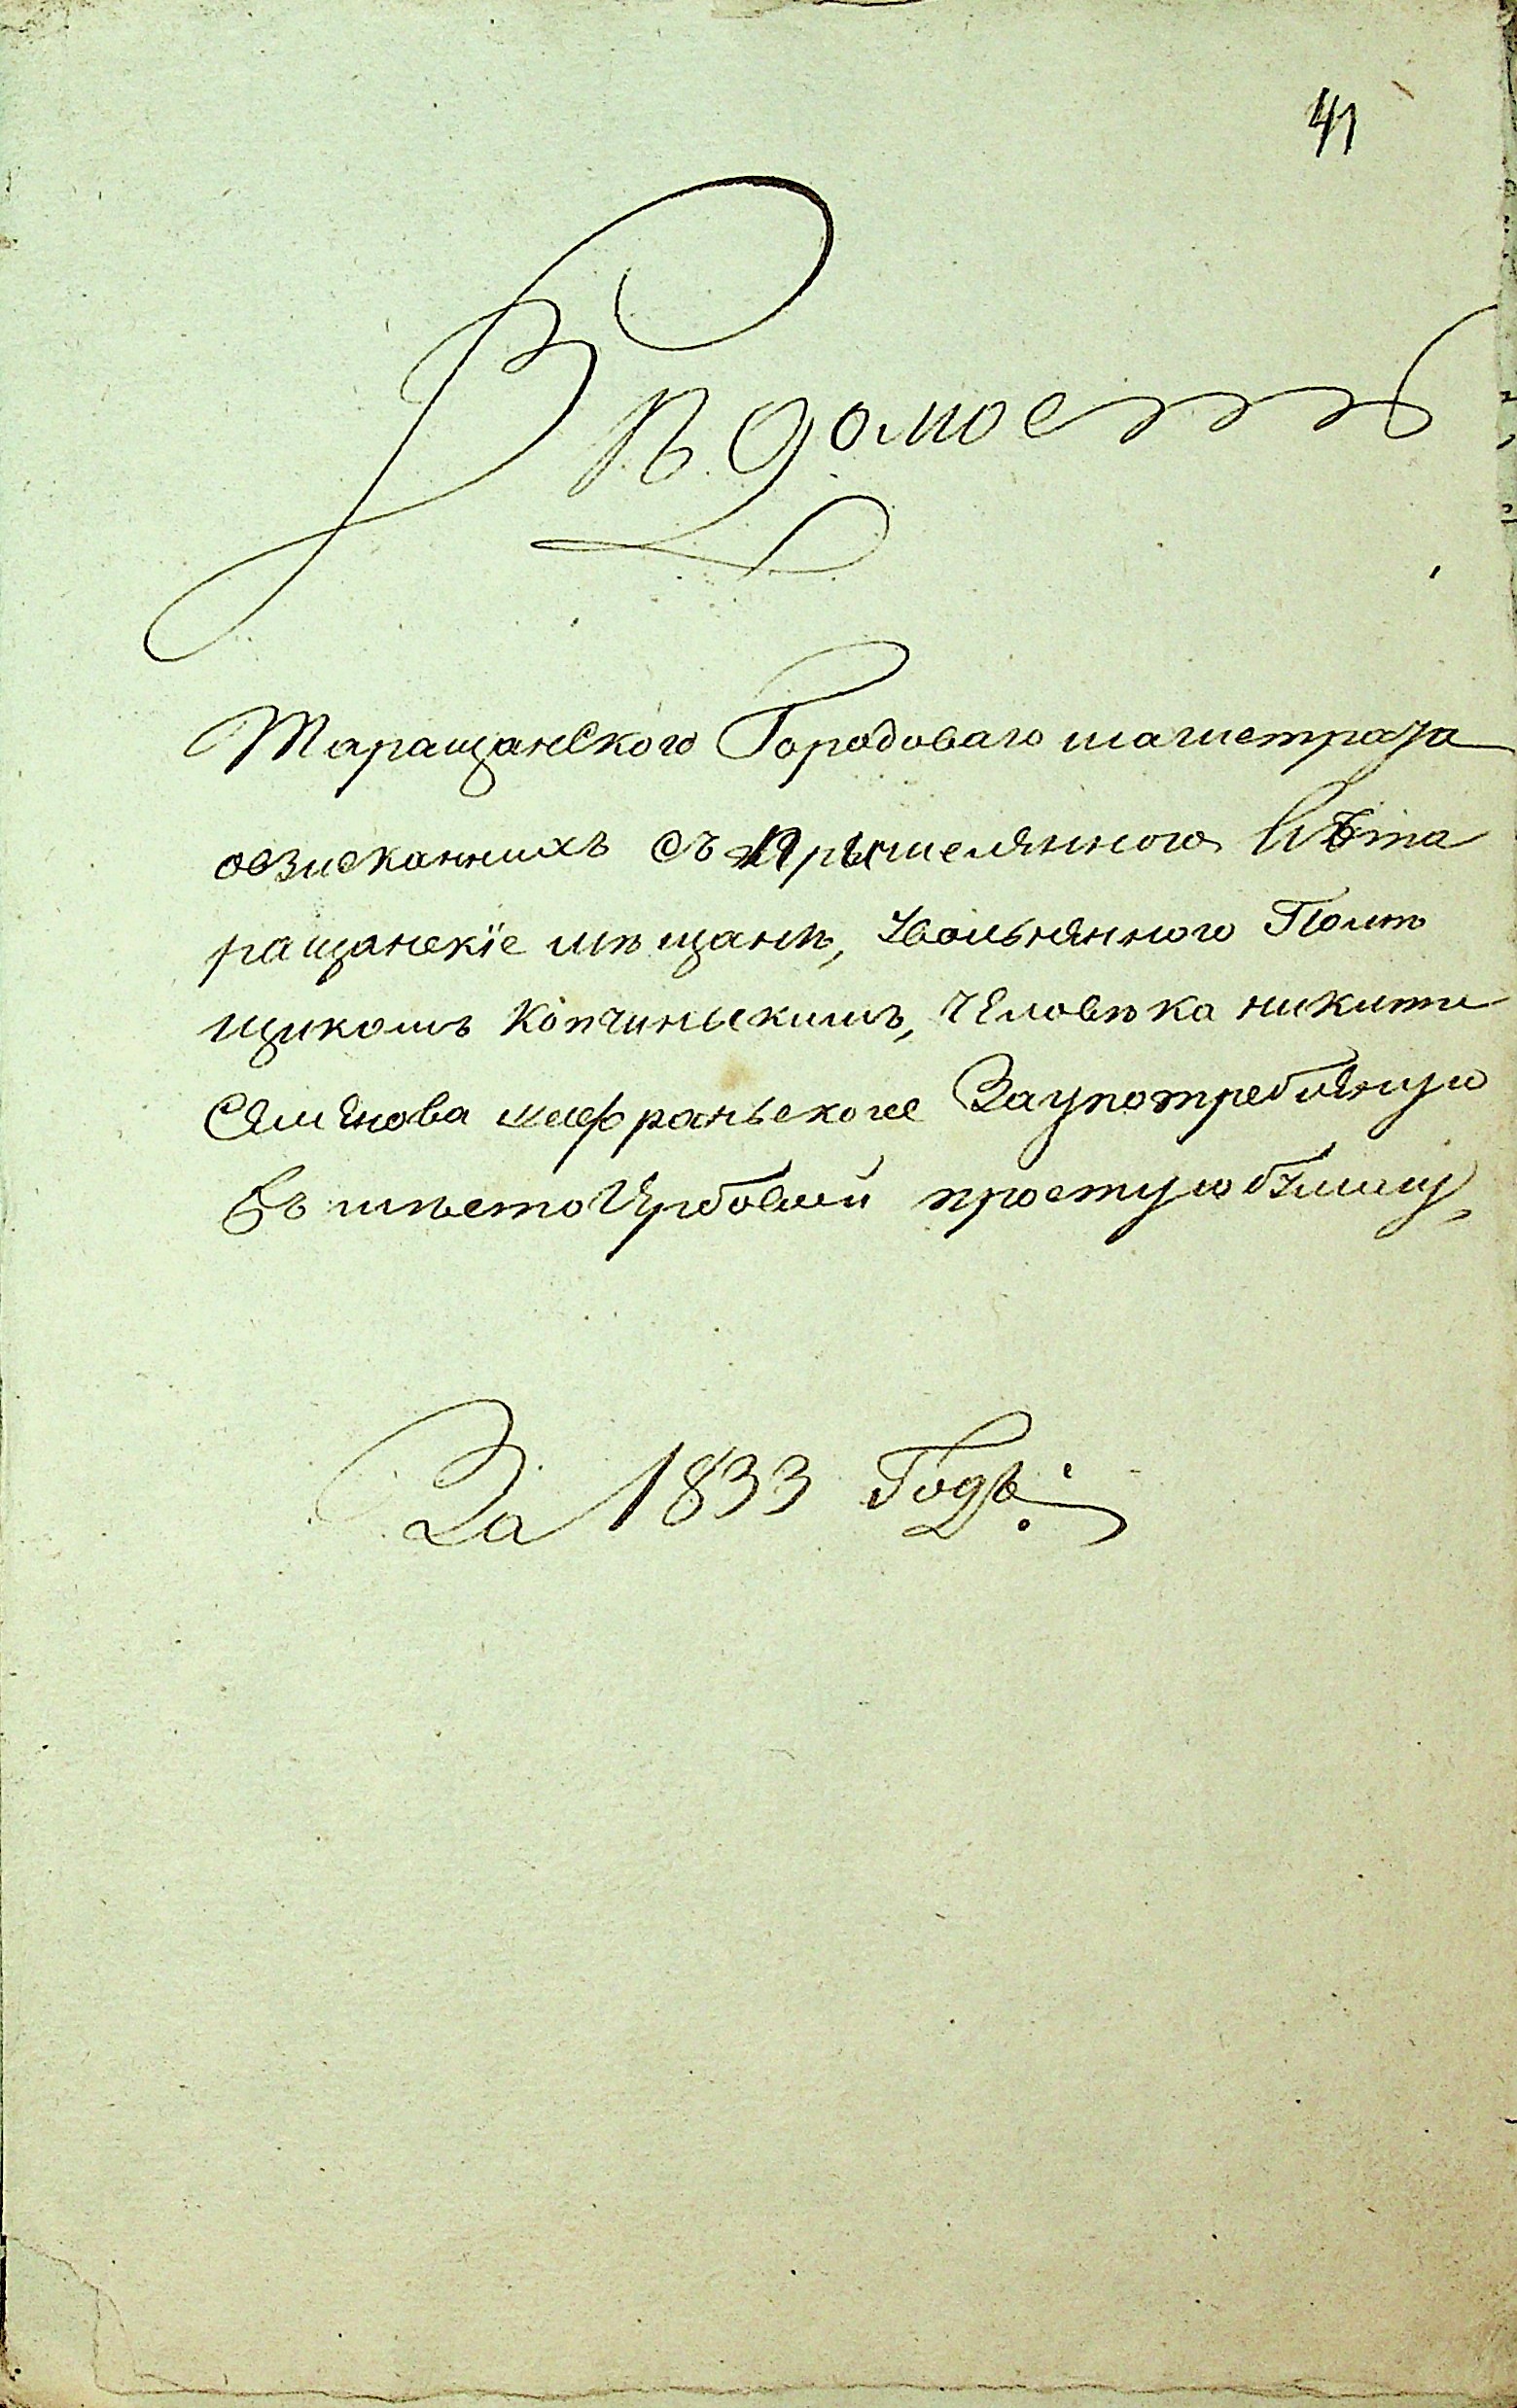 41
Вѣдомость
Таращанского Городоваго магистрата
овзисканныхъ съ причисляннога Вѣта
ращанскіе мѣщанѣ, уволняннного Помѣ
щикомъ Копчинькимъ, человѣка никити
Семѣнова Заупотребленую
Въ мѣсто Гербовой простую бумагу,
За 1833 Годъ: